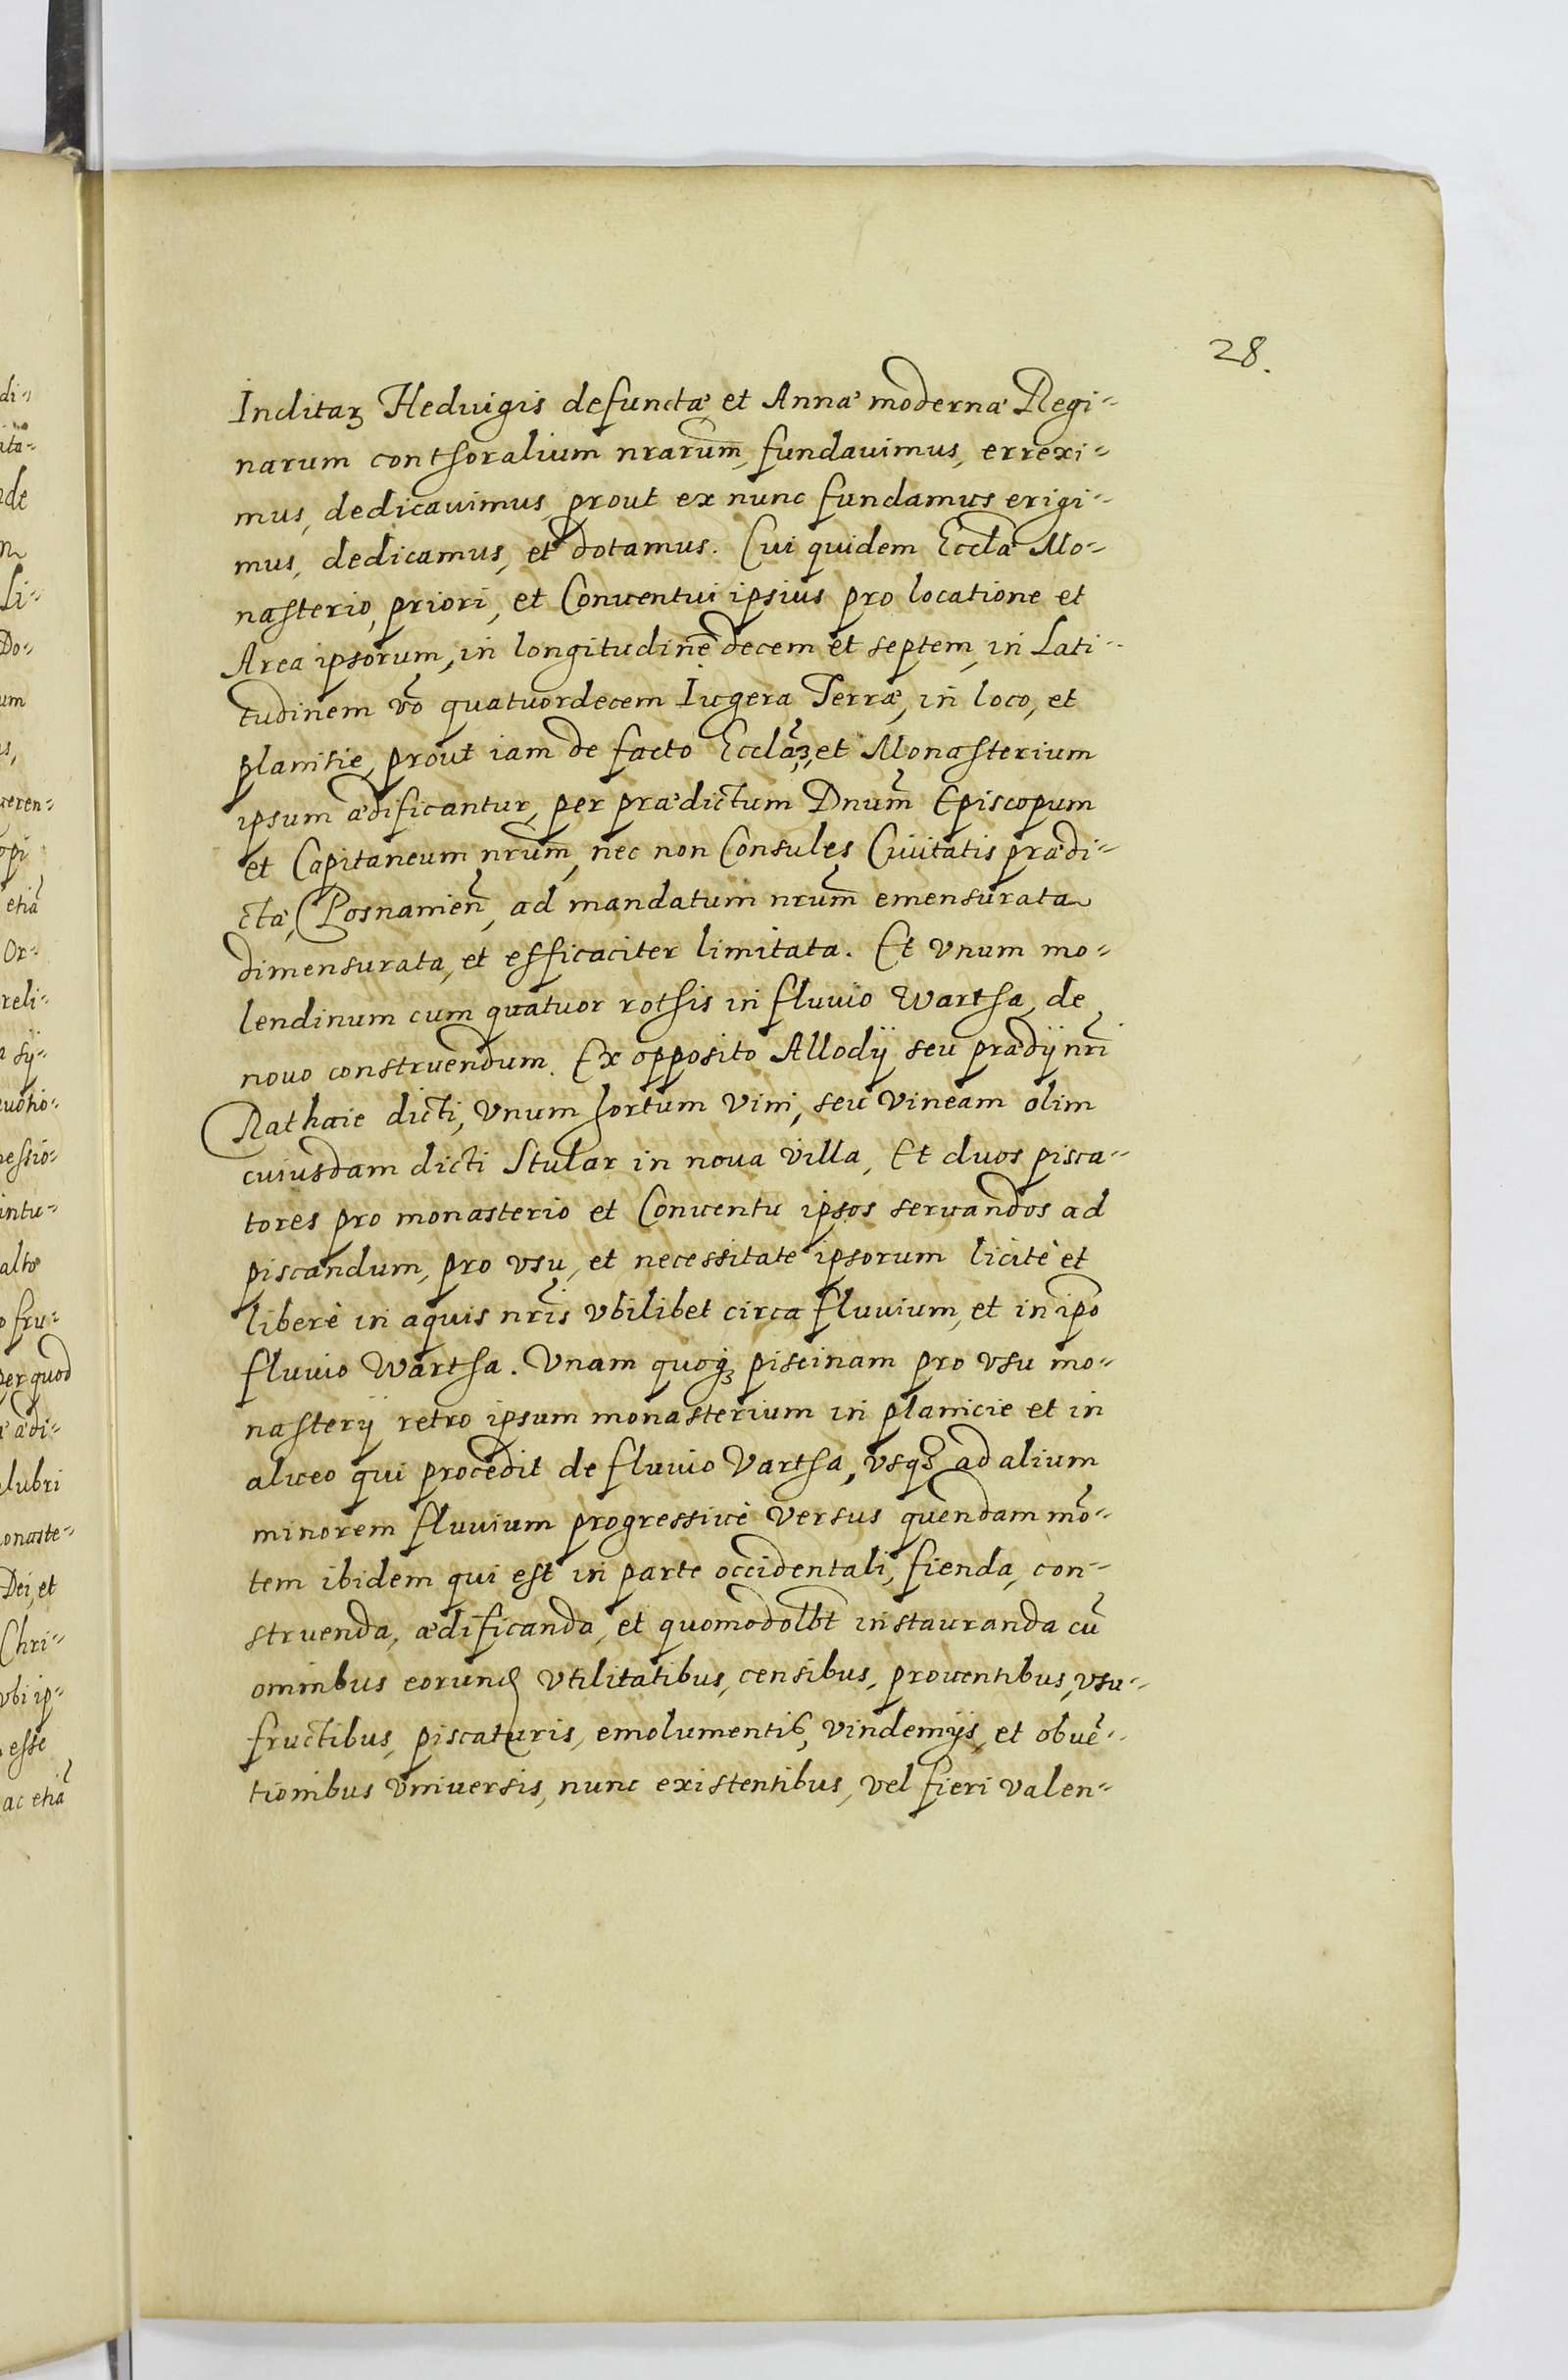 28.
Inclitaꝝ Heduigis defunctæ, et Annæ modernæ Regi-
narum conthoralium nrarum̃, fundauimus, errexi-
mus, dedicauimus, prout ex nunc fundamus erigi-
mus, dedicamus, et dotamus. Cui quidem Eccłæ Mo-
nasterio, priori, et Conuentui ipsius pro locatione et
Area ipsorum, in longitudinẽ decem et septem, in Lati-
tudinem võ quatuordecem Iugera Terræ, in loco, et
planitie, prout iam de facto Ecclãȝ, et Monasterium
ipsum ædificantur, per prædictum Dnum̃ Episcopum
et Capitaneum nrum̃, nec non Consules Ciuitatis prædi-
ctæ, Posnanien̄, ad mandatum nrum̃ emensurata
dimensurata, et efficaciter limitata. Et vnum mo-
lendinum cum quatuor rothis in fluuio Wartha, de
nouo construendum. Ex opposito Allodij seu prædij nr̃i
Rathaie dicti, vnum hortum vini, seu vineam olim
cuiusdam dicti Stular in noua villa, Et duos pisca-
tores pro monasterio et Conuentu ipsos seruandos ad
piscandum, pro vsu, et necessitate ipsorum licitè et
liberè in aquis nr̃is vbilibet circa fluuium, et in ip̃o
fluuio Wartha. Vnam quoqȝ piscinam pro vsu mo-
nasterij retro ipsum monasterium in planicie et in
alueo qui procedit de fluuio Vartha, vsqȝ ad alium
minorem fluuium progressiuè versus quendam mõ-
tem ibidem qui est in parte occidentali, fienda, con-
struenda, ædificanda, et quomodolbt instauranda cũ
omnibus eorund utilitatibus, censibus, prouentibus, vsu-
fructibus, piscaturis, emolumentis, vindemijs, et obuẽ-
tionibus vniuersis, nunc existentibus, vel fieri valen-